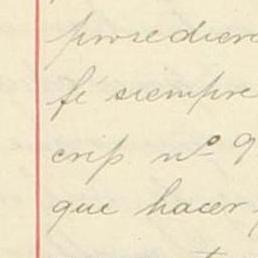 prosediera
fé siempre
crip. nº 9
que hacer